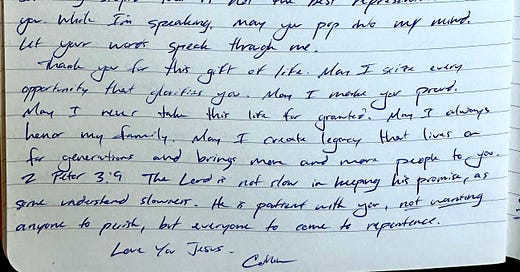 is not the best
you. While I'm speaking, may you pop into my mind.
Let your words speak through me.
Thank you for this gift of life. May I seize every
opportunity that glorifies you. May I make you proud.
May I never take this life for granted. May I always
honor my family. May I create legacy that lives on
for generations and brings more and more people to you.
2 Peter 3:9 The Lord is not slow in keeping his promise, as
some understand slowness. He is patient with you, not wanting
anyone to perish, but everyone to come to repentance.
Love You Jesus.